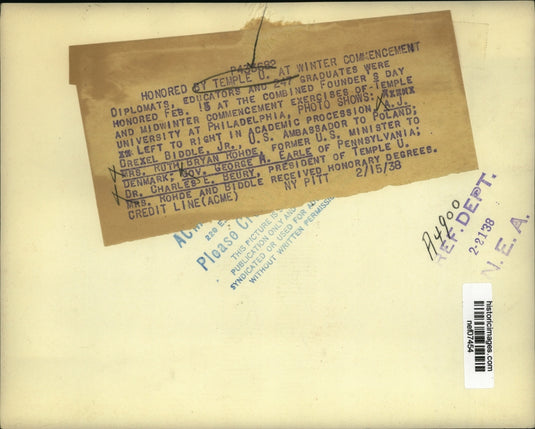 P435682
HONORED BY TEMPLE U. AT WINTER COMMENCEMENT
DIPLOMATS, EDUCATORS AND 247 GRADUATES WERE
HONORED FEB. 15 AT THE COMBINED FOUNDER'S DAY
AND MIDWINTER COMMENCEMENT EXERCISES OF TEMPLE
UNIVERSITY AT PHILADELPHIA, PHOTO SHOWS:
LEFT TO RIGHT IN ACADEMIC PROCESSION, A.J.
DREXEL BIDDLE, JR., U.S. AMBASSADOR TO POLAND;
MRS. RUTH BRYAN ROHDE, FORMER U.S. MINISTER TO
DENMARK; GOV. GEORGE H. EARLE OF PENNSYLVANIA;
DR. CHARLES E. BEURY, PRESIDENT OF TEMPLE U.
MRS. ROHDE AND BIDDLE RECEIVED HONORARY DEGREES.
CREDIT LINE(ACME) NY PITT 2/15/38
Please
THIS PICTURE IS
PUBLICATION ONLY AND
SYNDICATED OR USED FOR
WITHOUT WRITTEN PERMISSION
REF. DEPT.
2-21-38
N.E.A.
historicimages.com
nef07454